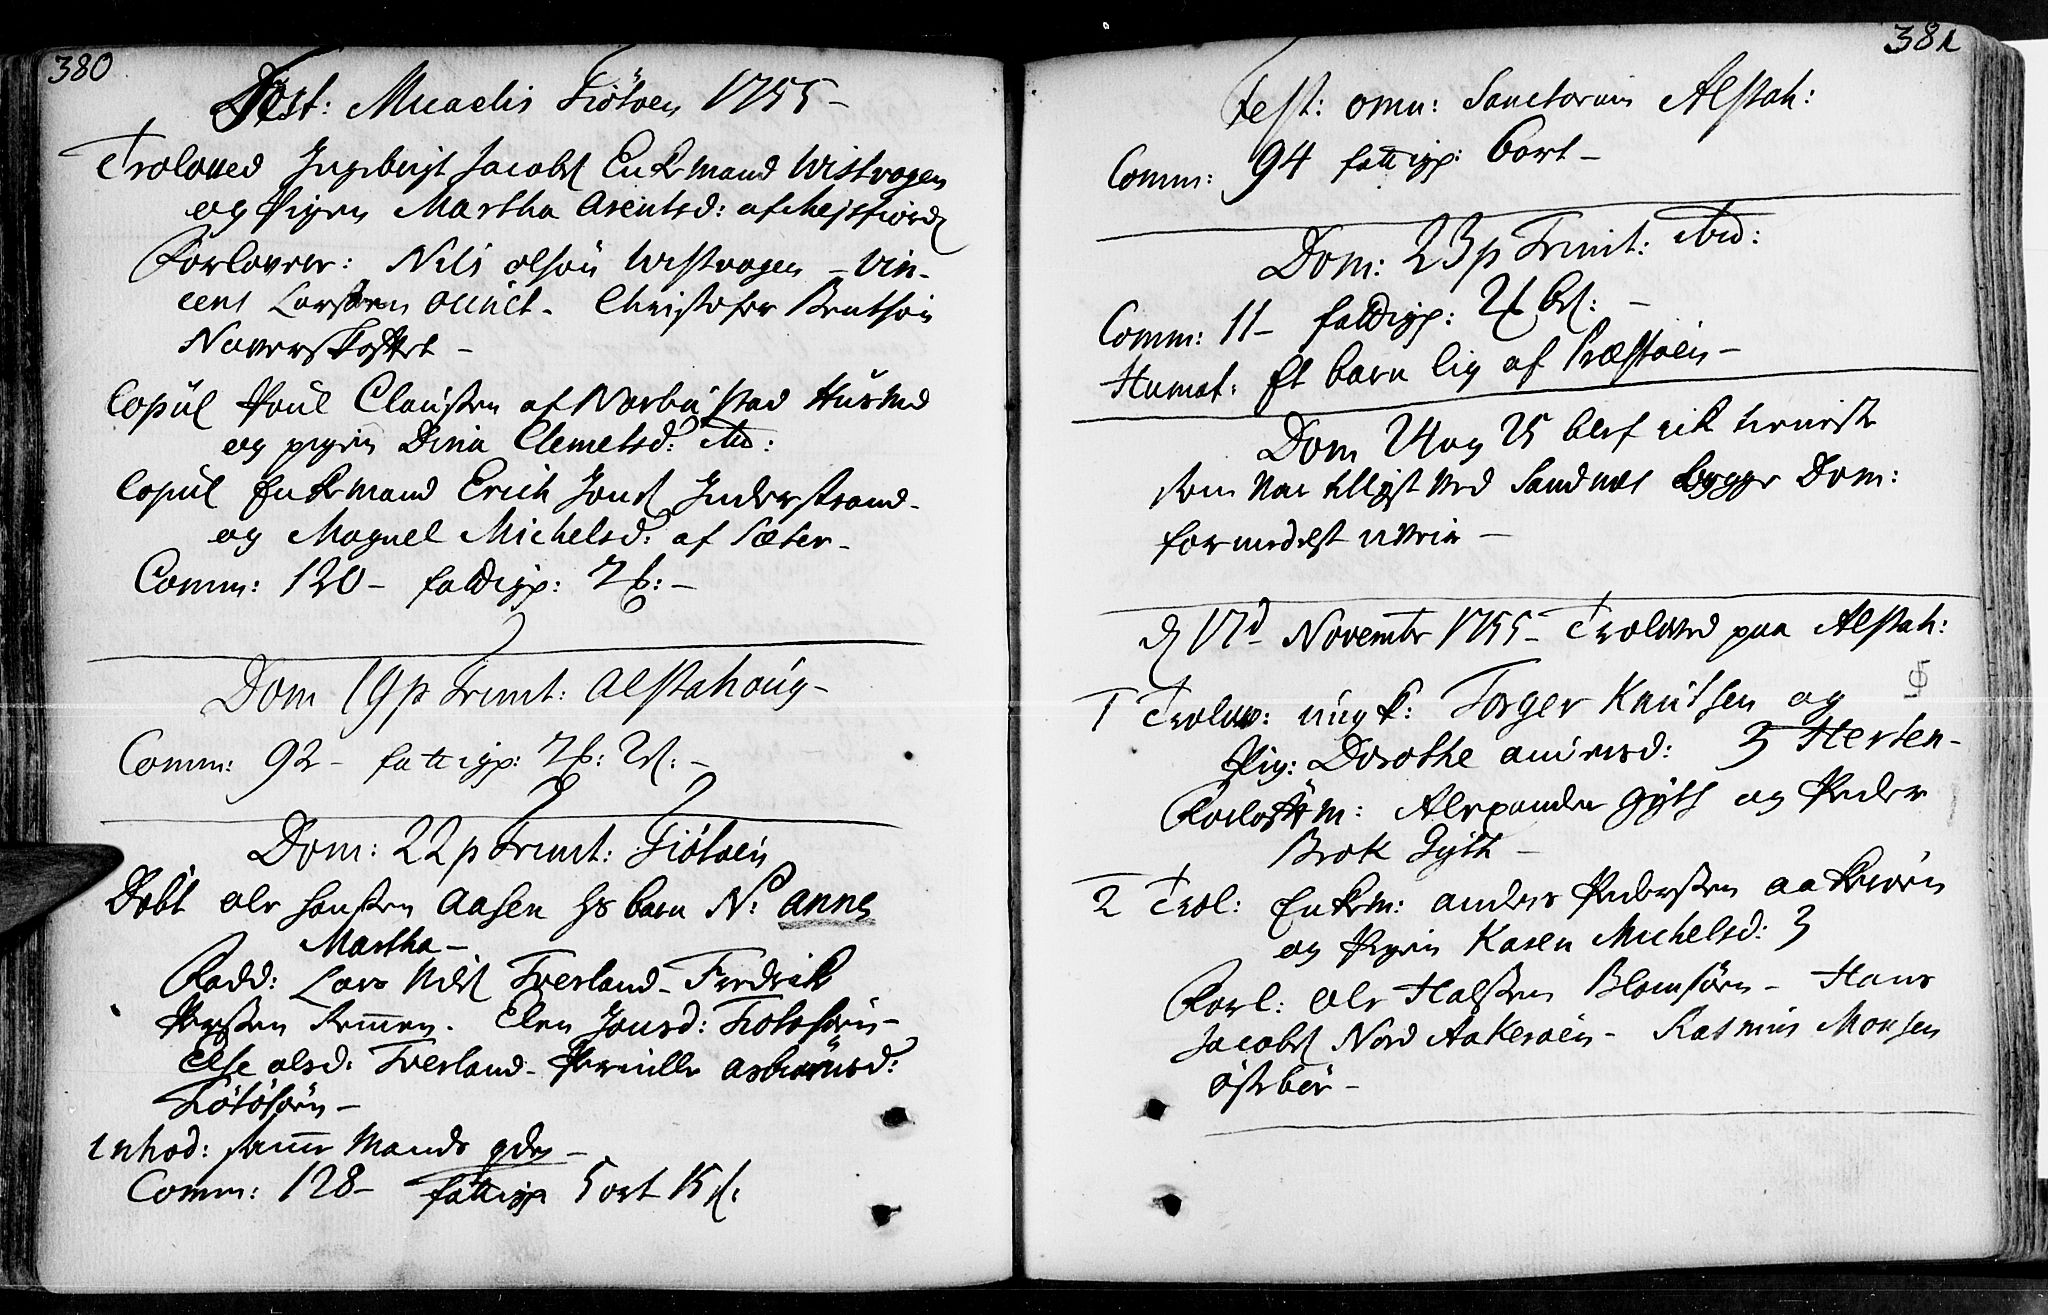 380
Fest: Micaelis Tiötöen 1755 –
Troloved Ingebrigt Jacobs Enkemand Wistvogen
og Pigen Martha Arentsd: af Mejsfiord
Forlover: Nils olsön Wistvogen – Vin-
cent Larssen – Christofer Bentsön
Naverskottet –
Copul Poul Claussen af Norbustad
og pigen Dina Clemetsd: ibid:
Copul Enkemand Erich Jons Inderstrand –
og Magnel Michelsd: af Sæter –
Comm: 120 – fattigp:
Dom 19 p Trinit: Alstahoug –
Comm: 92 – fattigp:
Dom: 22 p Trinit: Tiötöen
Döbt ole hanssen Aasen hs barn N: Anne
Martha –
Fadd: Lars Nils Tverland – Fredrik
Perssen Remmen. Elen Jonsd:
Else olsd: Tverland – Pernille
inhod: samme Mands
Comm: 128 – fattigp 5 ort 15 s:
381
Fest: omn: Sanctorum Alstah:
Comm: 94 fattigp: 6 ort –
Dom: 23 p Trinit: ibid:
Comm: 11 – fattigp:
Humat: Et barn lig af
Dom 24 og 25 blef ick tieniste
som var tillyst ved Sandnes begge Dom:
formedelst uveir –
d 17d November 1755 – Troloved paa Alstah:
1 Trolov: ungk: Torger Knutsen og
Pig: Dorothe andersd: } Herten –
Forlovrm: Alexander Gyth og Peder
Brok Gyth –
2 Trol: Enkem: anders Pederssen aakeröen
og Pigen Karen Michelsd: }
Forl: ole Halssen Blomsöen – Hans
Jacobs Nord Aakeröen – Rasmus Monsen
österbör –